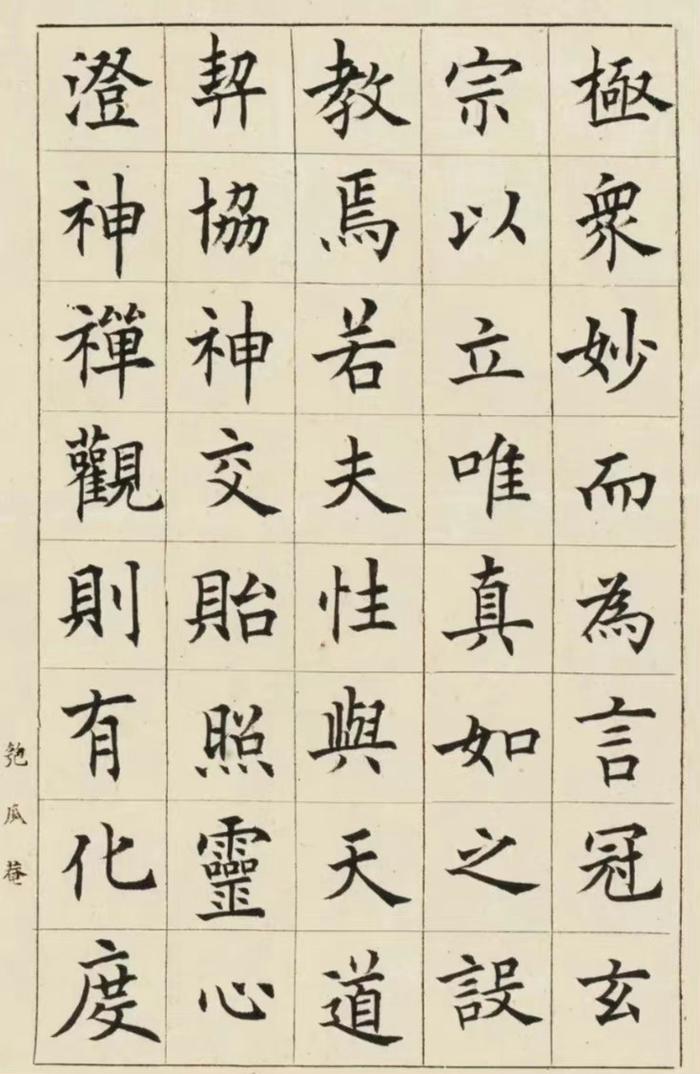 極衆妙而為言冠玄
宗以立唯真如之設
教焉若夫性與天道
契協神交貽照靈心
澄神禪觀則有化度
匏瓜菴